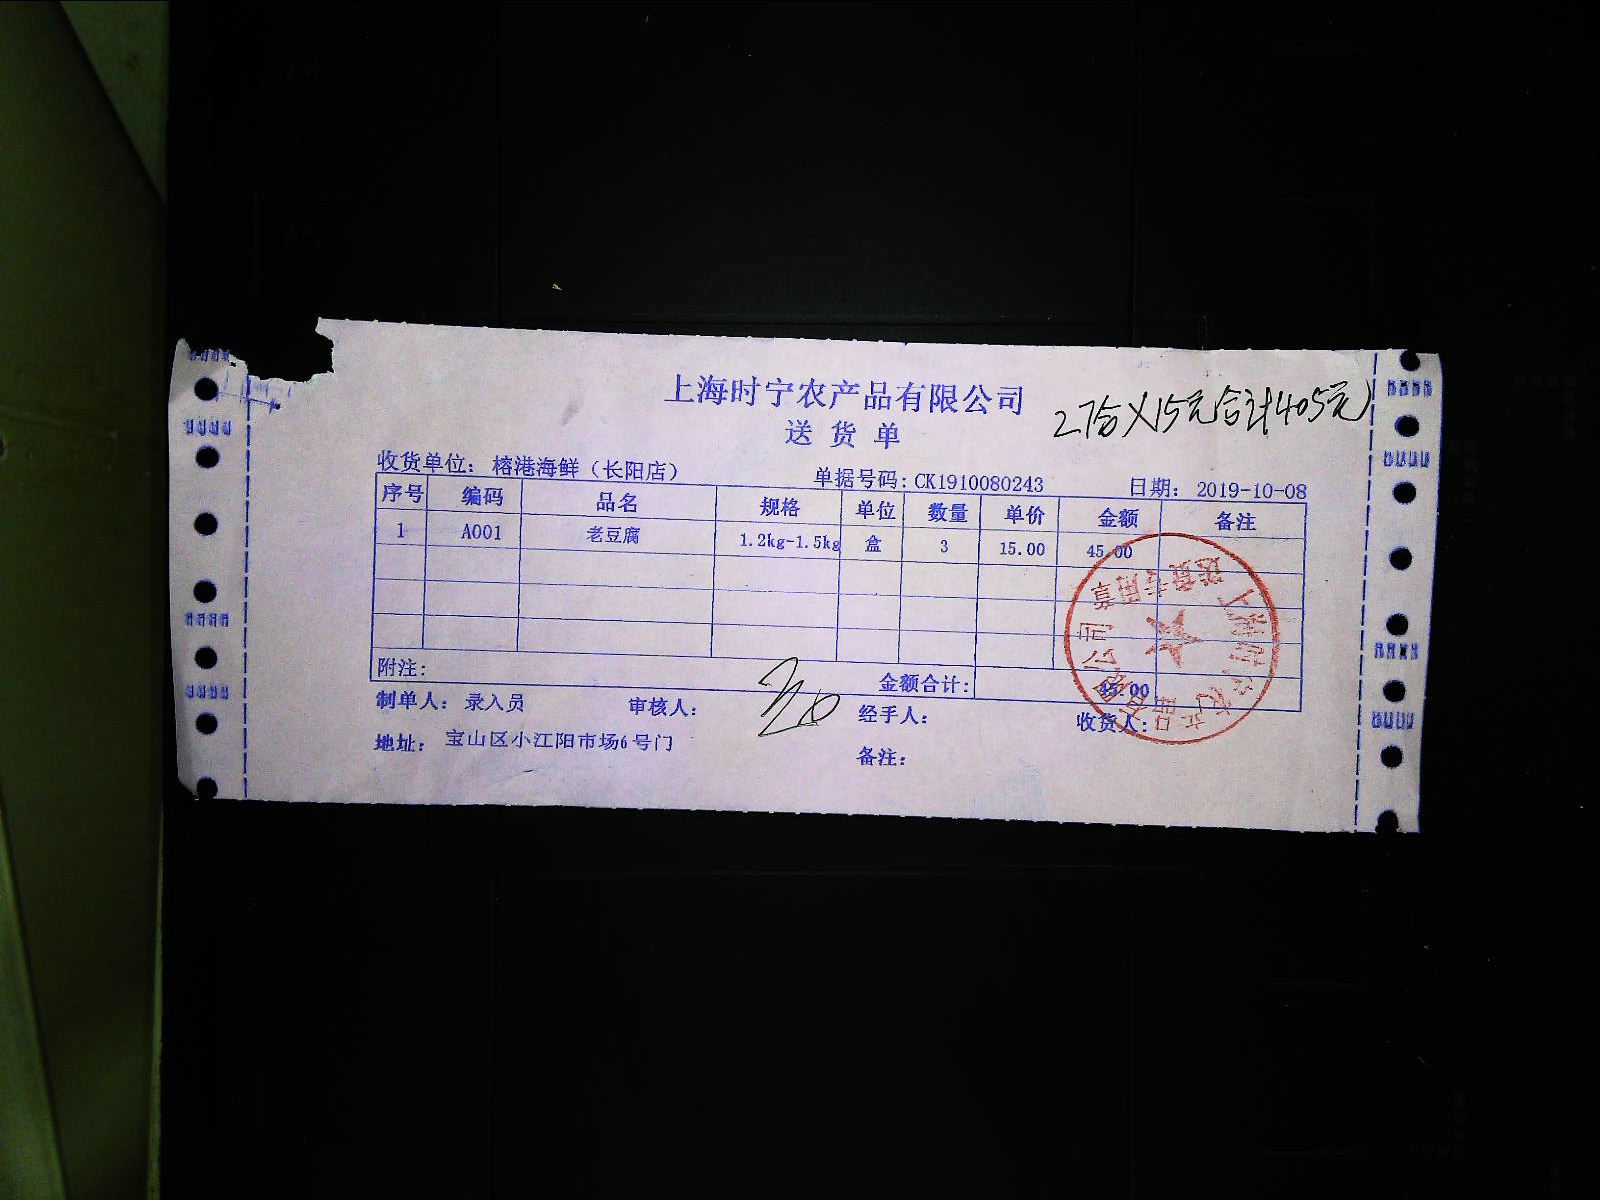 上海时宁农产品有限公司
27合×15元合计405元
送货单
收货单位: 榕港海鲜（长阳店） 单据号码: CK1910080243 日期: 2019-10-08
序号 编码 品名 规格 单位 数量 单价 金额 备注
1 A001 老豆腐 1.2kg-1.5kg 盒 3 15.00 45.00
附注: 金额合计: 45.00
制单人: 录入员 审核人: 经手人: 收货人:
地址: 宝山区小江阳市场6号门 备注:
上海时宁农产品有限公司
送货专用章